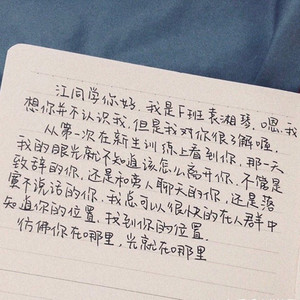 江同学你好,我是F班袁湘琴,嗯,我
想你并不认识我,但是我对你很了解喔,
从第一次在新生训练上看到你,那一天
我的眼光就不知道该怎么离开你,不管是
致辞的你,还是和旁人聊天的你,还是落
寞不说话的你,我总可以很快的在人群中
知道你的位置,找到你的位置.
彷佛你在哪里,光就在哪里